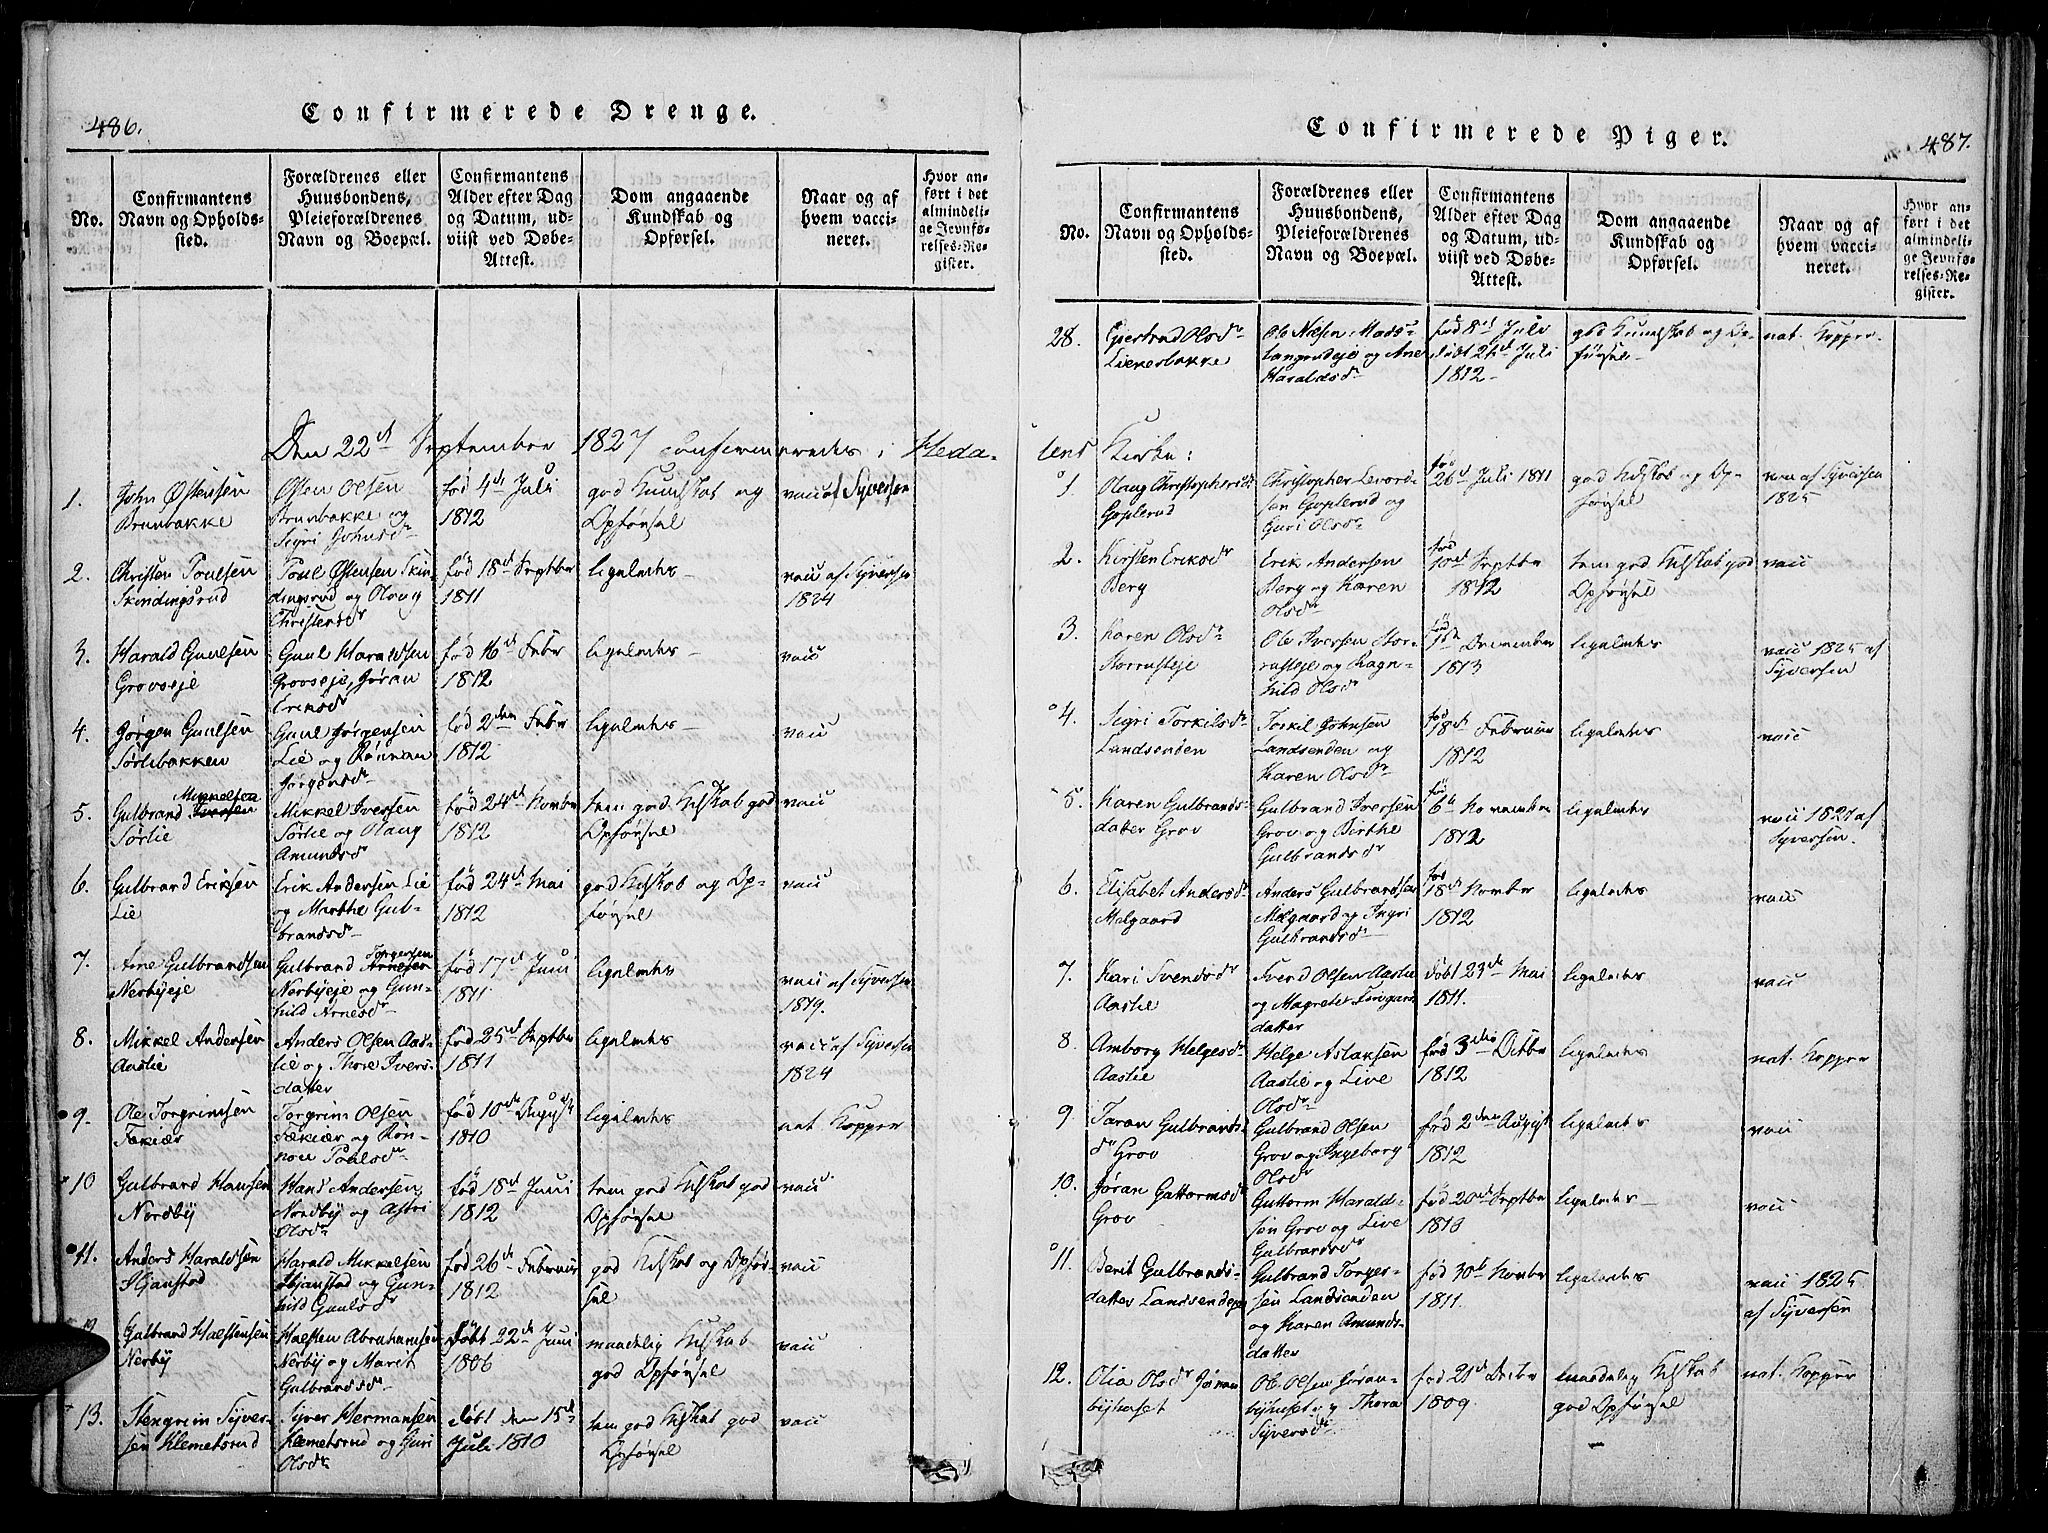 486.
Confirmerede Drenge.
No.
Confirmantens
Navn og Opholds-
sted.
Forældrenes eller
Huusbondens,
Pleieforældrenes
Navn og Boepæl.
Confirmantens
Alder efter Dag
og Datum, ud-
viist ved Døbe-
Attest.
Dom angaaende
Kundskab og
Opførsel.
Naar og af
hvem vacci-
neret.
Hvor an-
ført i det
almindeli-
ge Jevnfø-
relses-Re-
gister.
Den 22de September 1827 confirmeredes i Heda-
1.
John Østensen
Brunbakke
Østen Olsen
Brunbakke og
Sigri Johnsdr
fød 4de Juli
1812
god Kundskab og
Opførsel
vacc af Syversen
2.
Christen Poulsen
Skindingsrud
Poul Østensen Skin-
dingsrud og Olaug
Christensdr
fød 18de Septbr
1811
ligeledes
vacc af Syversen
1824
3.
Harald Guulsen
Grovseje
Guul Haraldsen
Grovseje, Jøran
Eriksdr
fød 16de Febr
1812
ligeledes
vacc
4.
Jørgen Guulsen
Sørlibakken
Guul Jørgensen
Lie og Rønnau
Jørgensdr
fød 2den Febr
1812
ligeledes
vacc
5.
Gulbrand Iversen Mikkelsen
Sørlie
Mikkel Iversen
Sørlie og Olaug
Amundsdr
fød 24de Novbr
1812
tem. god Kdskab god
Opførsel
vacc
6.
Gulbrand Eriksen
Lie
Erik Andersen Lie
og Marthe Gul-
brandsdr
fød 24de Mai
1812
god Kdskab og Op-
førsel
vacc
7.
Arne Gulbrandsen
Nerbyeje
Gulbrand Arnesen Torgersen
Nerbyeje og Gun-
hild Arnesdr
fød 17de Juni
1811
ligeledes
vacc af Syversen
1819.
8.
Mikkel Andersen
Aaslie
Anders Olsen Aas-
lie og Thore Ivers-
datter
fød 25de Septbr
1811
ligeledes
vacc af Syversen
1824
9.
Ole Torgrimsen
Fækjær
Torgrim Olsen
Fækjær og Røn-
nou Poulsdr
fød 10de August
1810
ligeledes
nat. Kopper
10
Gulbrand Hansen
Nordby
Hans Andersen
Nordby og Astri
Olsdr
fød 18de Juni
1812
tem god Kdskab god
Opførsel
vacc
11.
Anders Haraldsen
Skjanstad
Harald Mikkelsen
Skjanstad og Gun-
hild Guulsdr
fød 26de Februar
1812
god Kdskab og Opfør-
sel
vacc
12
Gulbrand Halstensen
Nerby
Halsten Abrahamsen
Nerby og Marit
Gulbrandsdr
døbt 22de Juni
1806
maadelig Kdskab
god Opførsel
vacc
13.
Stengrim Syver-
sen Klemetsrud
Syver Hermansen
Klemetsrud og Guri
Olsdr
døbt den 15de
Juli 1810
tem god Kdskab god
Opførsel
vacc
487.
Confirmerede Piger.
No.
Confirmantens
Navn og Opholds-
sted.
Forældrenes eller
Huusbondens,
Pleieforældrenes
Navn og Boepæl.
Confirmantens
Alder efter Dag
og Datum, ud-
viist ved Døbe-
Attest.
Dom angaaende
Kundskab og
Opførsel.
Naar og af
hvem vacci-
neret.
Hvor an-
ført i det
almindeli-
ge Jevnfø-
relses-Re-
gister.
28.
Gjertrud Olsdr
Ole Nilsen Mads-
langrudeje og Ane
Haraldsdr
fød 8de Juli
døbt 26de Juli
1812
god Kundskab og Op-
førsel
nat. Kopper.
lens Kirke:
1.
Olaug Christophersdr
Goplerud
Christopher Levord-
sen Goplerud og
Guri Olsdr
fød
26de Juli 1811
god Kdskab og Op-
førsel
vacc af Syversen
1825
2.
Kirsten Eriksdr
Berg
Erik Andersen
Berg og Karen
Olsdr
fød
10de Septbr
1812
tem god Kdskab god
Opførsel
vacc
3.
Karen Olsdr
Storrusteje
Ole Iversen Stor-
rusteje og Ragn-
hild Olsdr
fød
1ste December
1813
ligeledes
vacc 1825 af
Syversen
4.
Sigri Torkilsdr
Landsenden
Torkil Johnsen
Landsenden og
Karen Olsdr
fød
18de Februar
1812
ligeledes
vacc
5.
Karen Gulbrands-
datter Grov
Gulbrand Iversen
Grov og Birthe
Gulbrandsdr
fød
6te November
1812
ligeledes
vacc 1827 af
Syversen.
6.
Elisabet Andersdr
Melgaard
Anders Gulbrandsen
Melgaard og Ingri
Gulbrandsdr
fød
18de Novbr
1812
ligeledes
vacc
7.
Kari Svendsdr
Aaslie
Svend Olsen Aaslie
og Magrete
datter
døbt 23de Mai
1811.
ligeledes
vacc
8.
Amborg Helgesdr
Aaslie
Helge Aslaksen
Aaslie og Live
Olsdr
fød 3die Octbr
1812
ligeledes
nat. Kopper
9.
Taran Gulbrands-
dr Grov
Gulbrand Olsen
Grov og Ingeborg
Olsdr
fød 2den August
1812
ligeledes
vacc
10.
Jøran Guttormsdr
Grov
Guttorm Harald-
sen Grov og Live
Gulbrandsdr
fød 20de Septbr
1810
ligeledes
vacc
11.
Berit Gulbrands-
datter Landsendeje
Gulbrand Torges-
sen Landsenden
og Karen Amunds-
datter
fød 30te Novbr
1811.
ligeledes
vacc 1825
af Syversen
12.
Olia Olsdr Jøran-
byhuset
Ole Olsen Jøran-
byhuset og Thora
Syversdr
fød 21de Decbr
1809.
maadelig Kdskab
god Opførsel
nat. Kopper